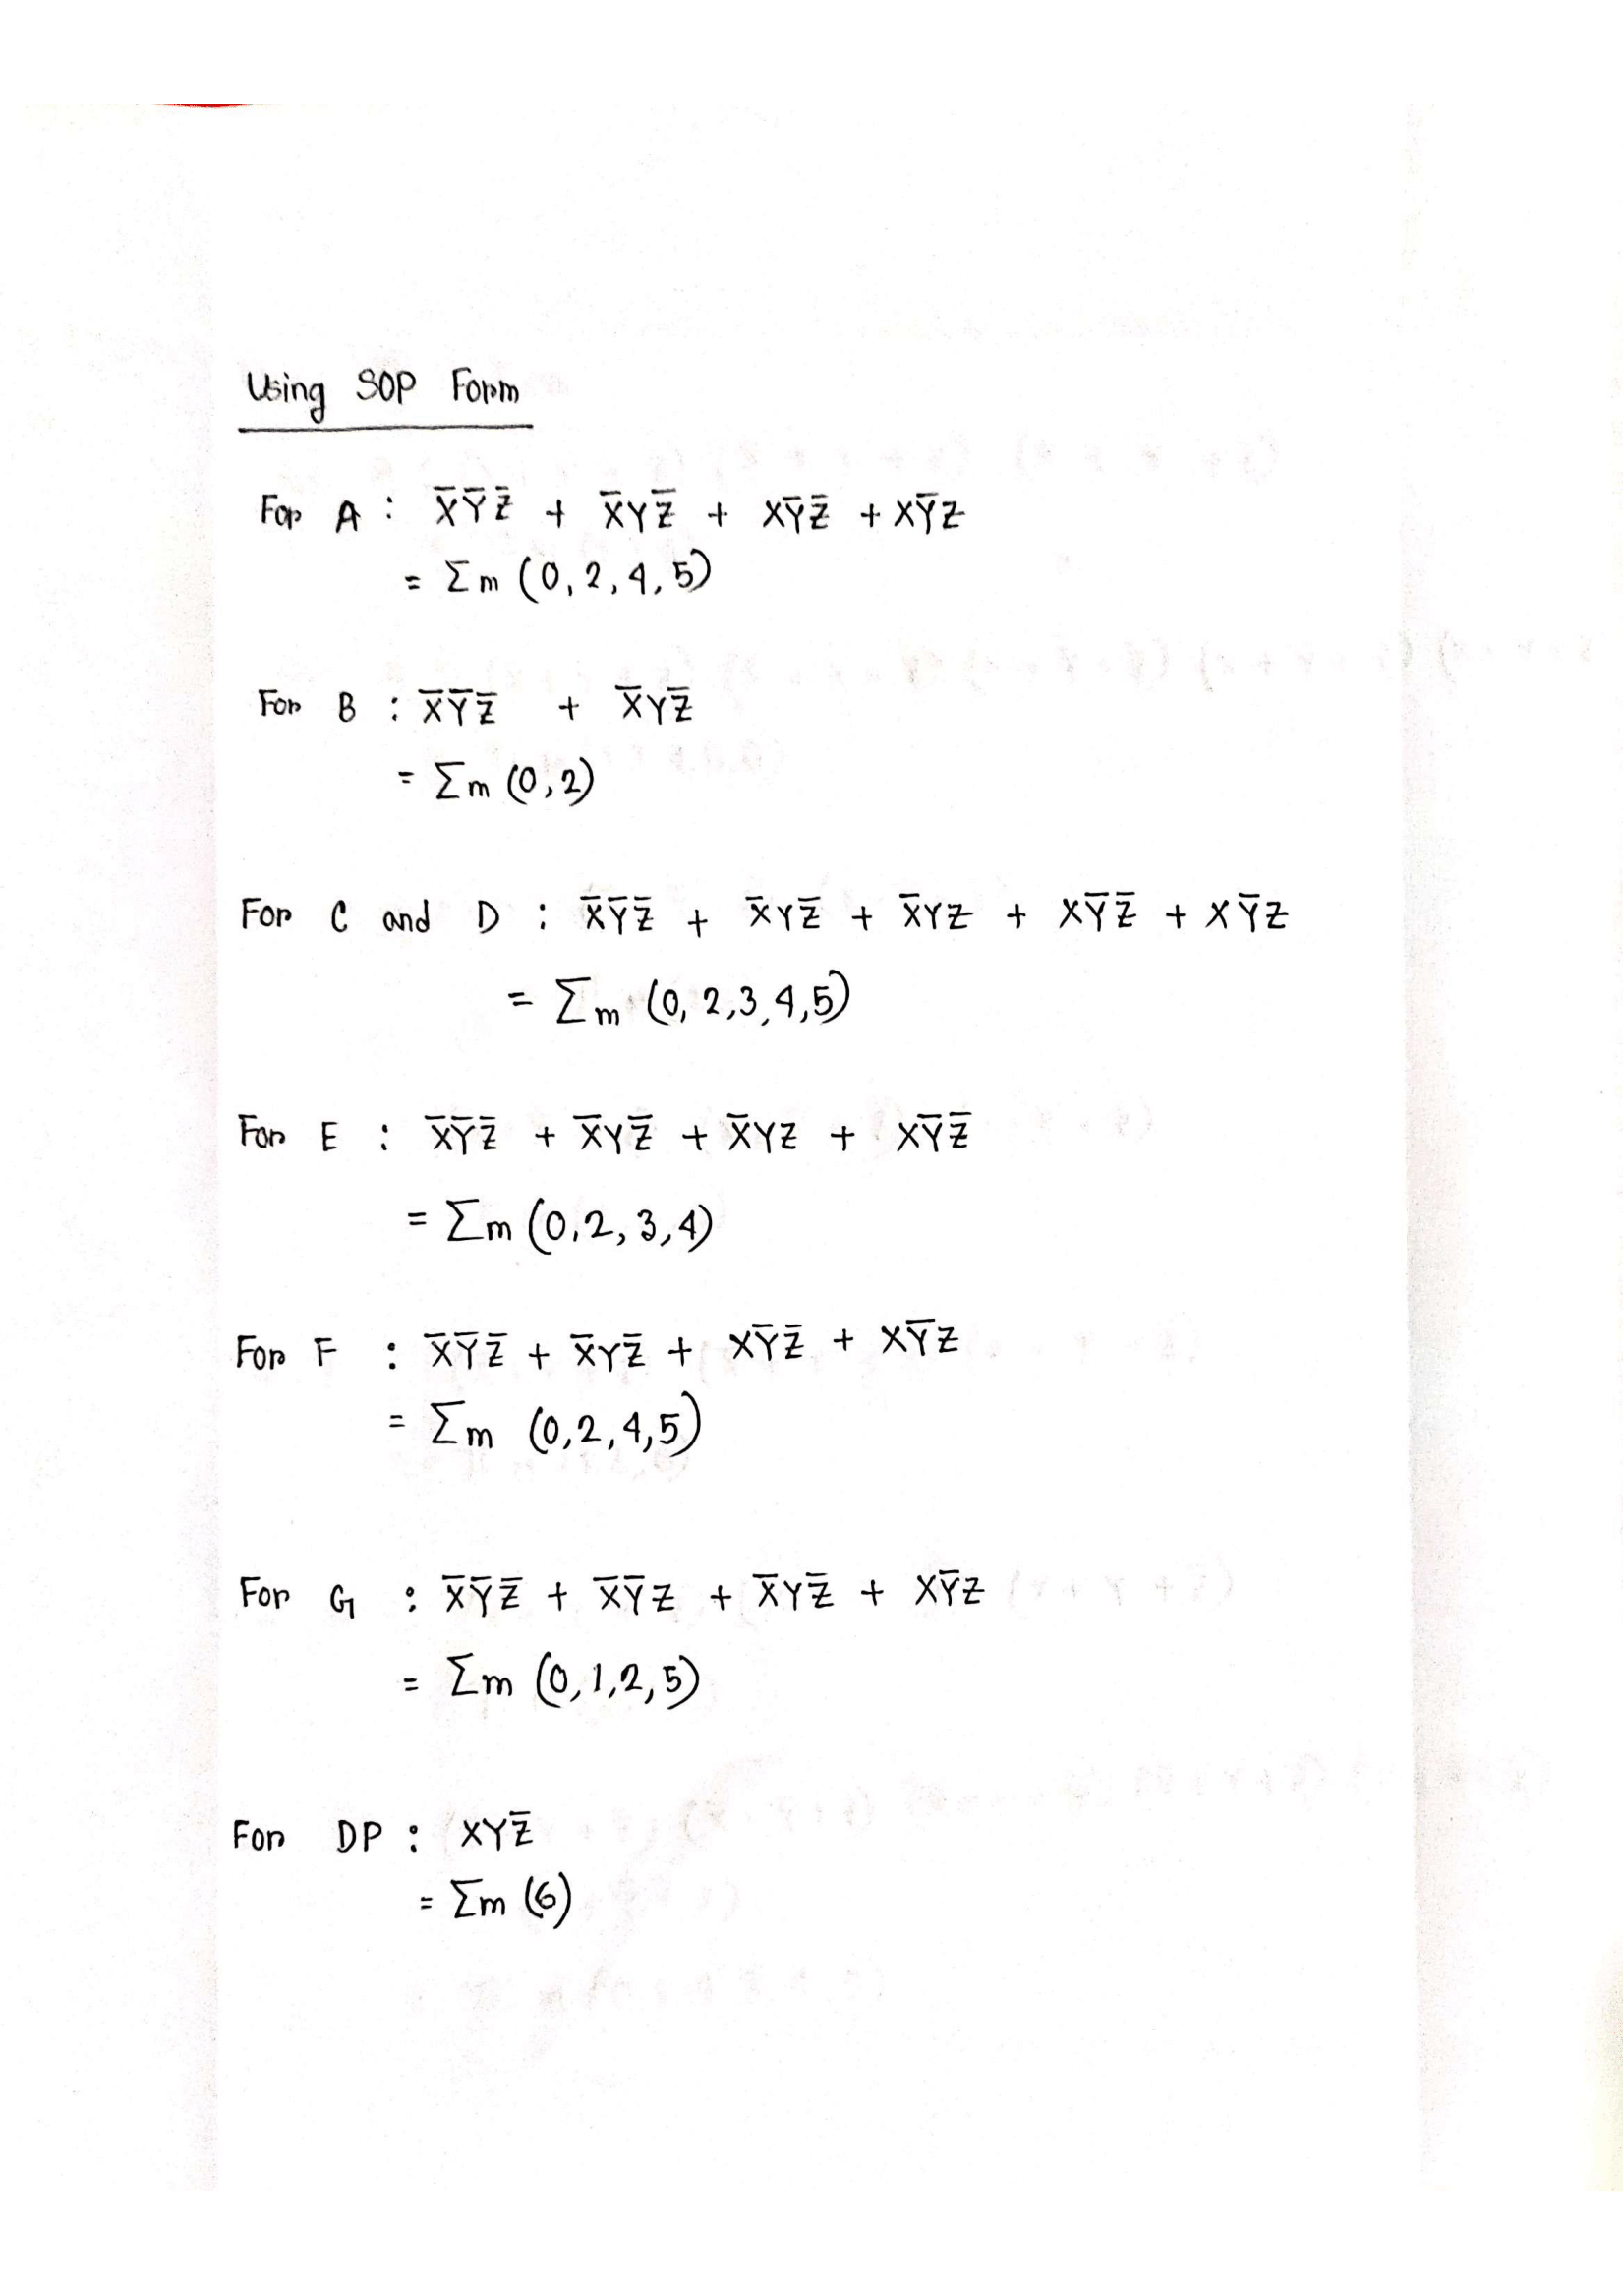 Using SOP Form
For A : X̅Y̅Z̅ + X̅YZ̅ + XY̅Z̅ + XY̅Z
= Σm (0, 2, 4, 5)
For B : X̅Y̅Z̅ + X̅YZ̅
= Σm (0, 2)
For C and D : X̅Y̅Z̅ + X̅YZ̅ + X̅YZ + XY̅Z̅ + XY̅Z
= Σm (0, 2, 3, 4, 5)
For E : X̅Y̅Z̅ + X̅YZ̅ + X̅YZ + XY̅Z̅
= Σm (0, 2, 3, 4)
For F : X̅Y̅Z̅ + X̅YZ̅ + XY̅Z̅ + XY̅Z
= Σm (0, 2, 4, 5)
For G : X̅Y̅Z̅ + X̅Y̅Z + X̅YZ̅ + XY̅Z
= Σm (0, 1, 2, 5)
For DP : XYZ̅
= Σm (6)